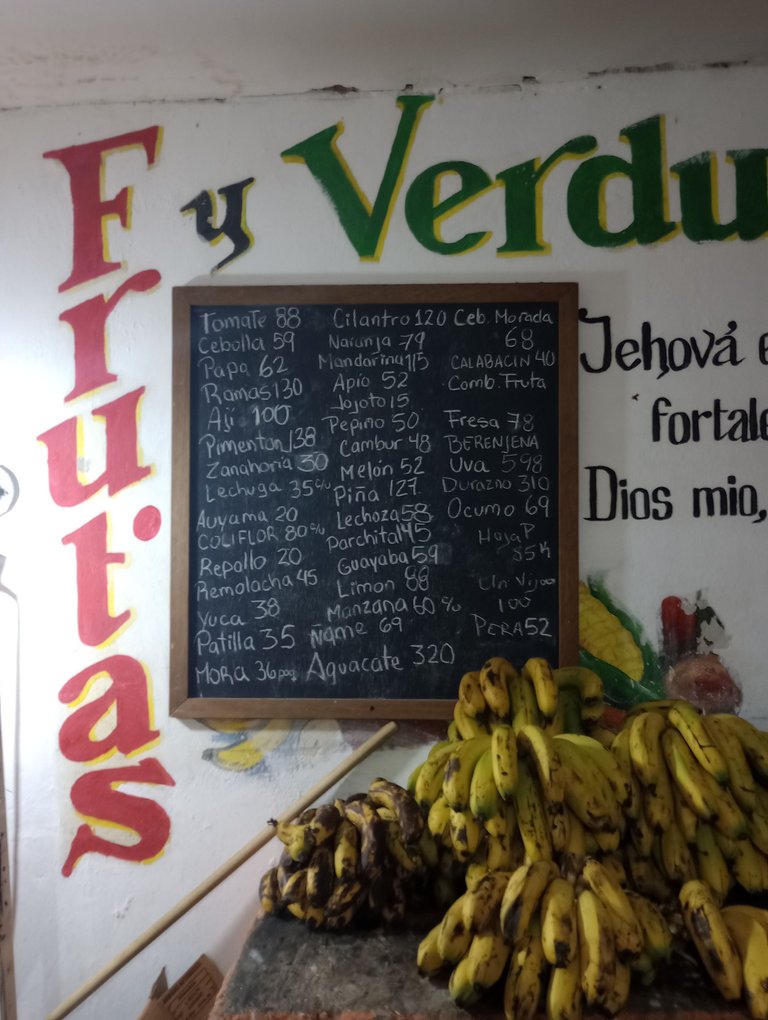 Frutas
y Verdu
Tomate 88
Cebolla 59
Papa 62
Ramas 130
Ají 100
Pimenton 138
Zanahoria 30
Lechuga 35 c/u
Auyama 20
COLIFLOR 80 %
Repollo 20
Remolacha 45
Yuca 38
Patilla 35
MORA 36 paq
Cilantro 120
Naranja 79
Mandarina 115
Apio 52
Jojoto 15
Pepino 50
Cambur 48
Melón 52
Piña 127
Lechoza 58
Parchita 145
Guayaba 59
Limon 88
Manzana 60 %
Ñame 69
Aguacate 320
Ceb. Morada
68
CALABACIN 40
Comb. Fruta
Fresa 78
BERENJENA
Uva 598
Durazno 310
Ocumo 69
Hoja P
85 K
100
PERA 52
Jehová e
fortale
Dios mio,